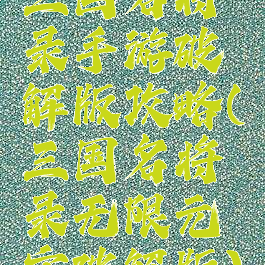 三国名将
录手游破
解版攻略(
三国名将
录无限元
宝破解版)